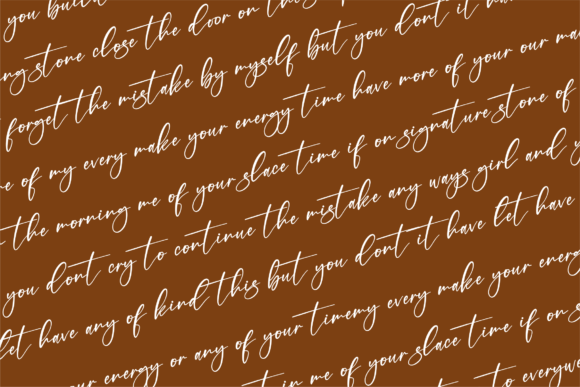 you build
stone close the door on this
forget the mistake by myself but you dont it have
of my every make your energy time have more of your our
the morning me of your slace time if on signature stone of
you dont cry to continue the mistake any ways girl and
let have any of kind this but you dont it have let have
energy or any of your timemy every make your
in me of your slace time if on
to